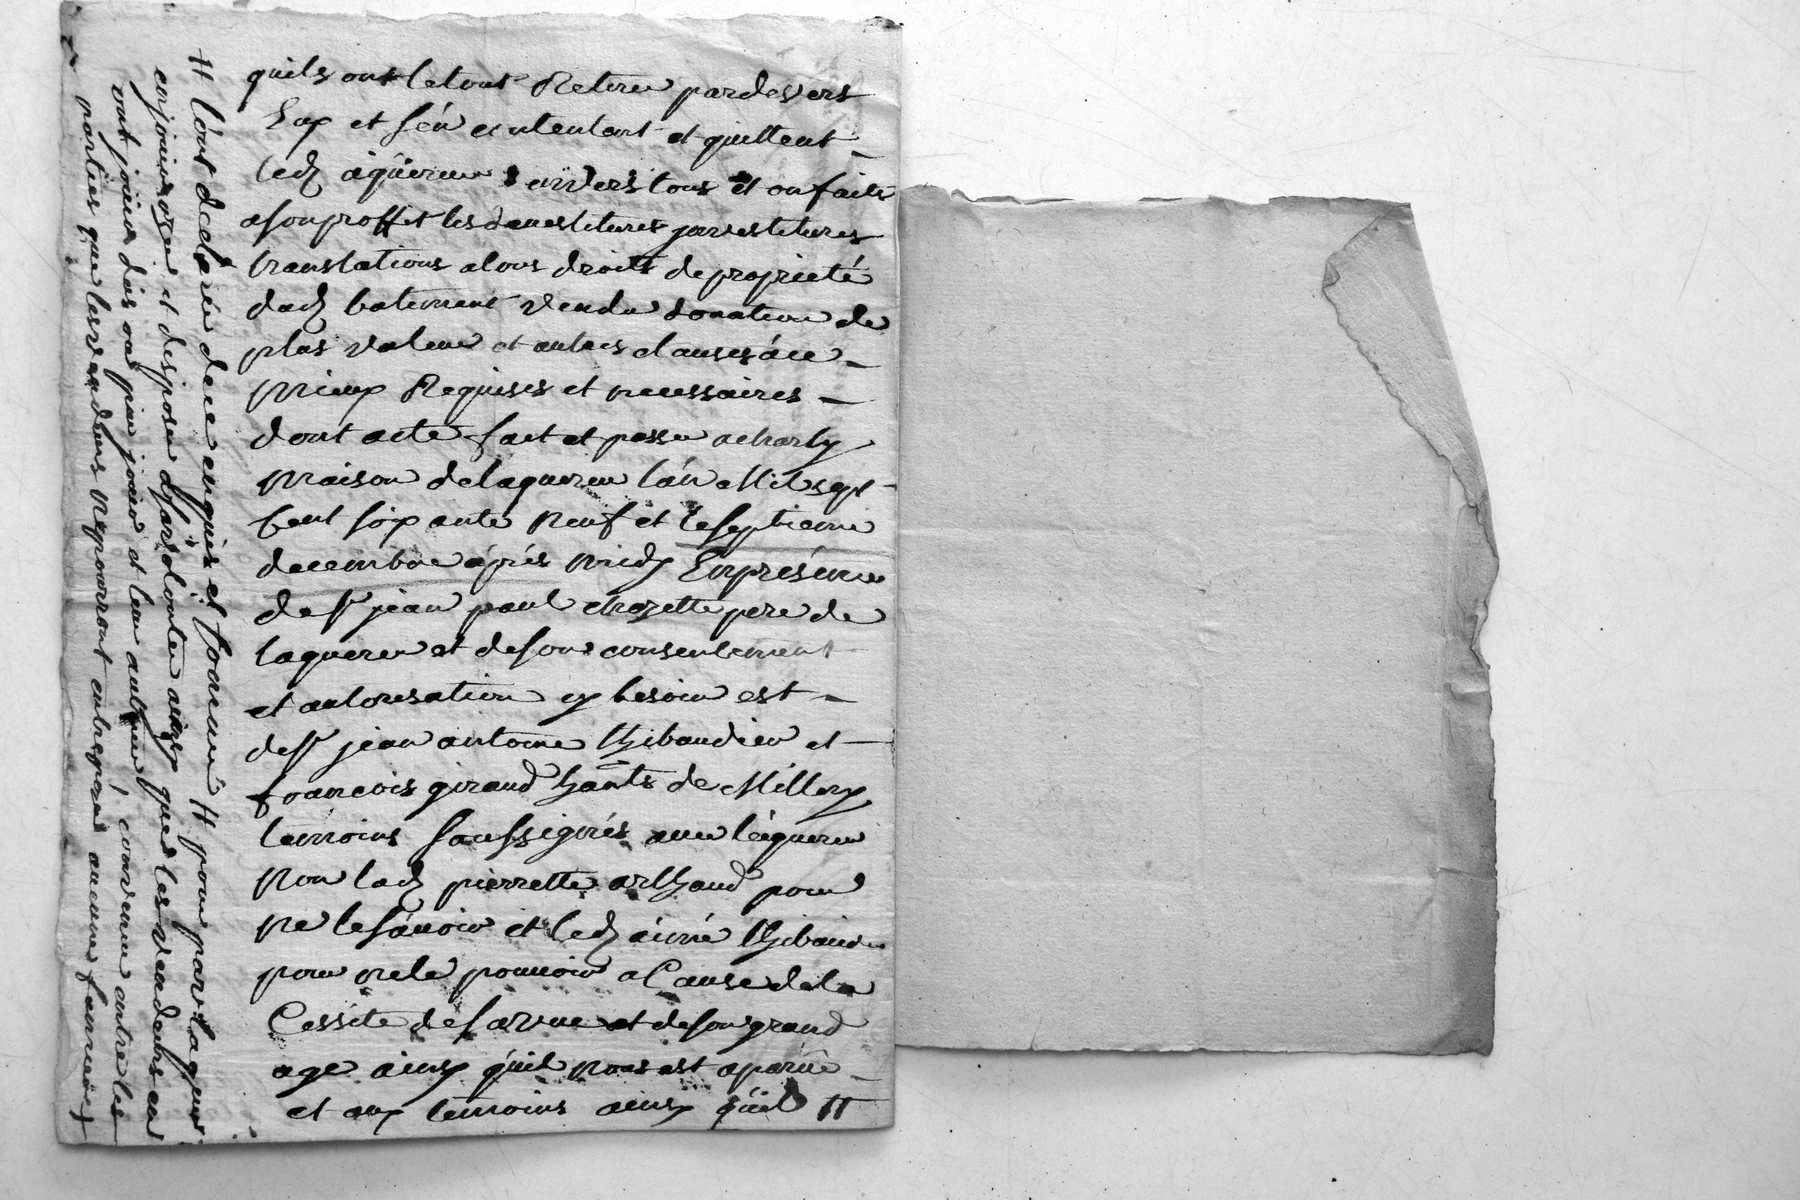 quils ont le tout Retiré pardevers
Eux et s'en contentant et quittent
led aquereur envers tous et on faits
a son proffit les devestitures jnvestitures
translations a tous droits de proprieté
dud batiment vendu donation de
plus value et autres clauses a ce
mieux Requises et necessaires
dont acte fait et passé a charly
maison de laquereur l'an Mil sept
Cent soixante neuf et le septieme
decembre áprés midy En présence
de Sr jean paul chozette pere de
laquereur et de son consentement
et autorisation sy besoin est
de Sr jean antoine thibaudier et
francois giraud hants de Millery
temoins soussignés avec l'aquereur
Non lad pierrette arthaud pour
ne le sávoir et led áimé thibaudier
pour ne le pouvoir a Cause de la
Cessite de sa vue et de son grand
age ainsy quil nous est aparüe
et aux temoins ainsy quil #
# l'ont declarée de ce enquis et sommé # pour par laquereur
en jouir user et disposer des a volonté ainsy que les vendeurs en
ont joüis dus ou pu jouir et leur auteurs convenu entre les
parties que les vendeurs ne pourront entreprendre aucune